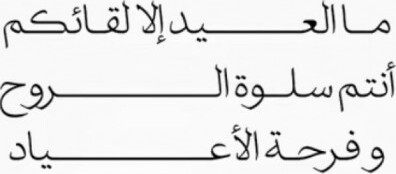 ما العـــــيد إلا لقائكم
أنتم سلـوة الــــــــــروح
وفرحـة الأعـــــــــــياد